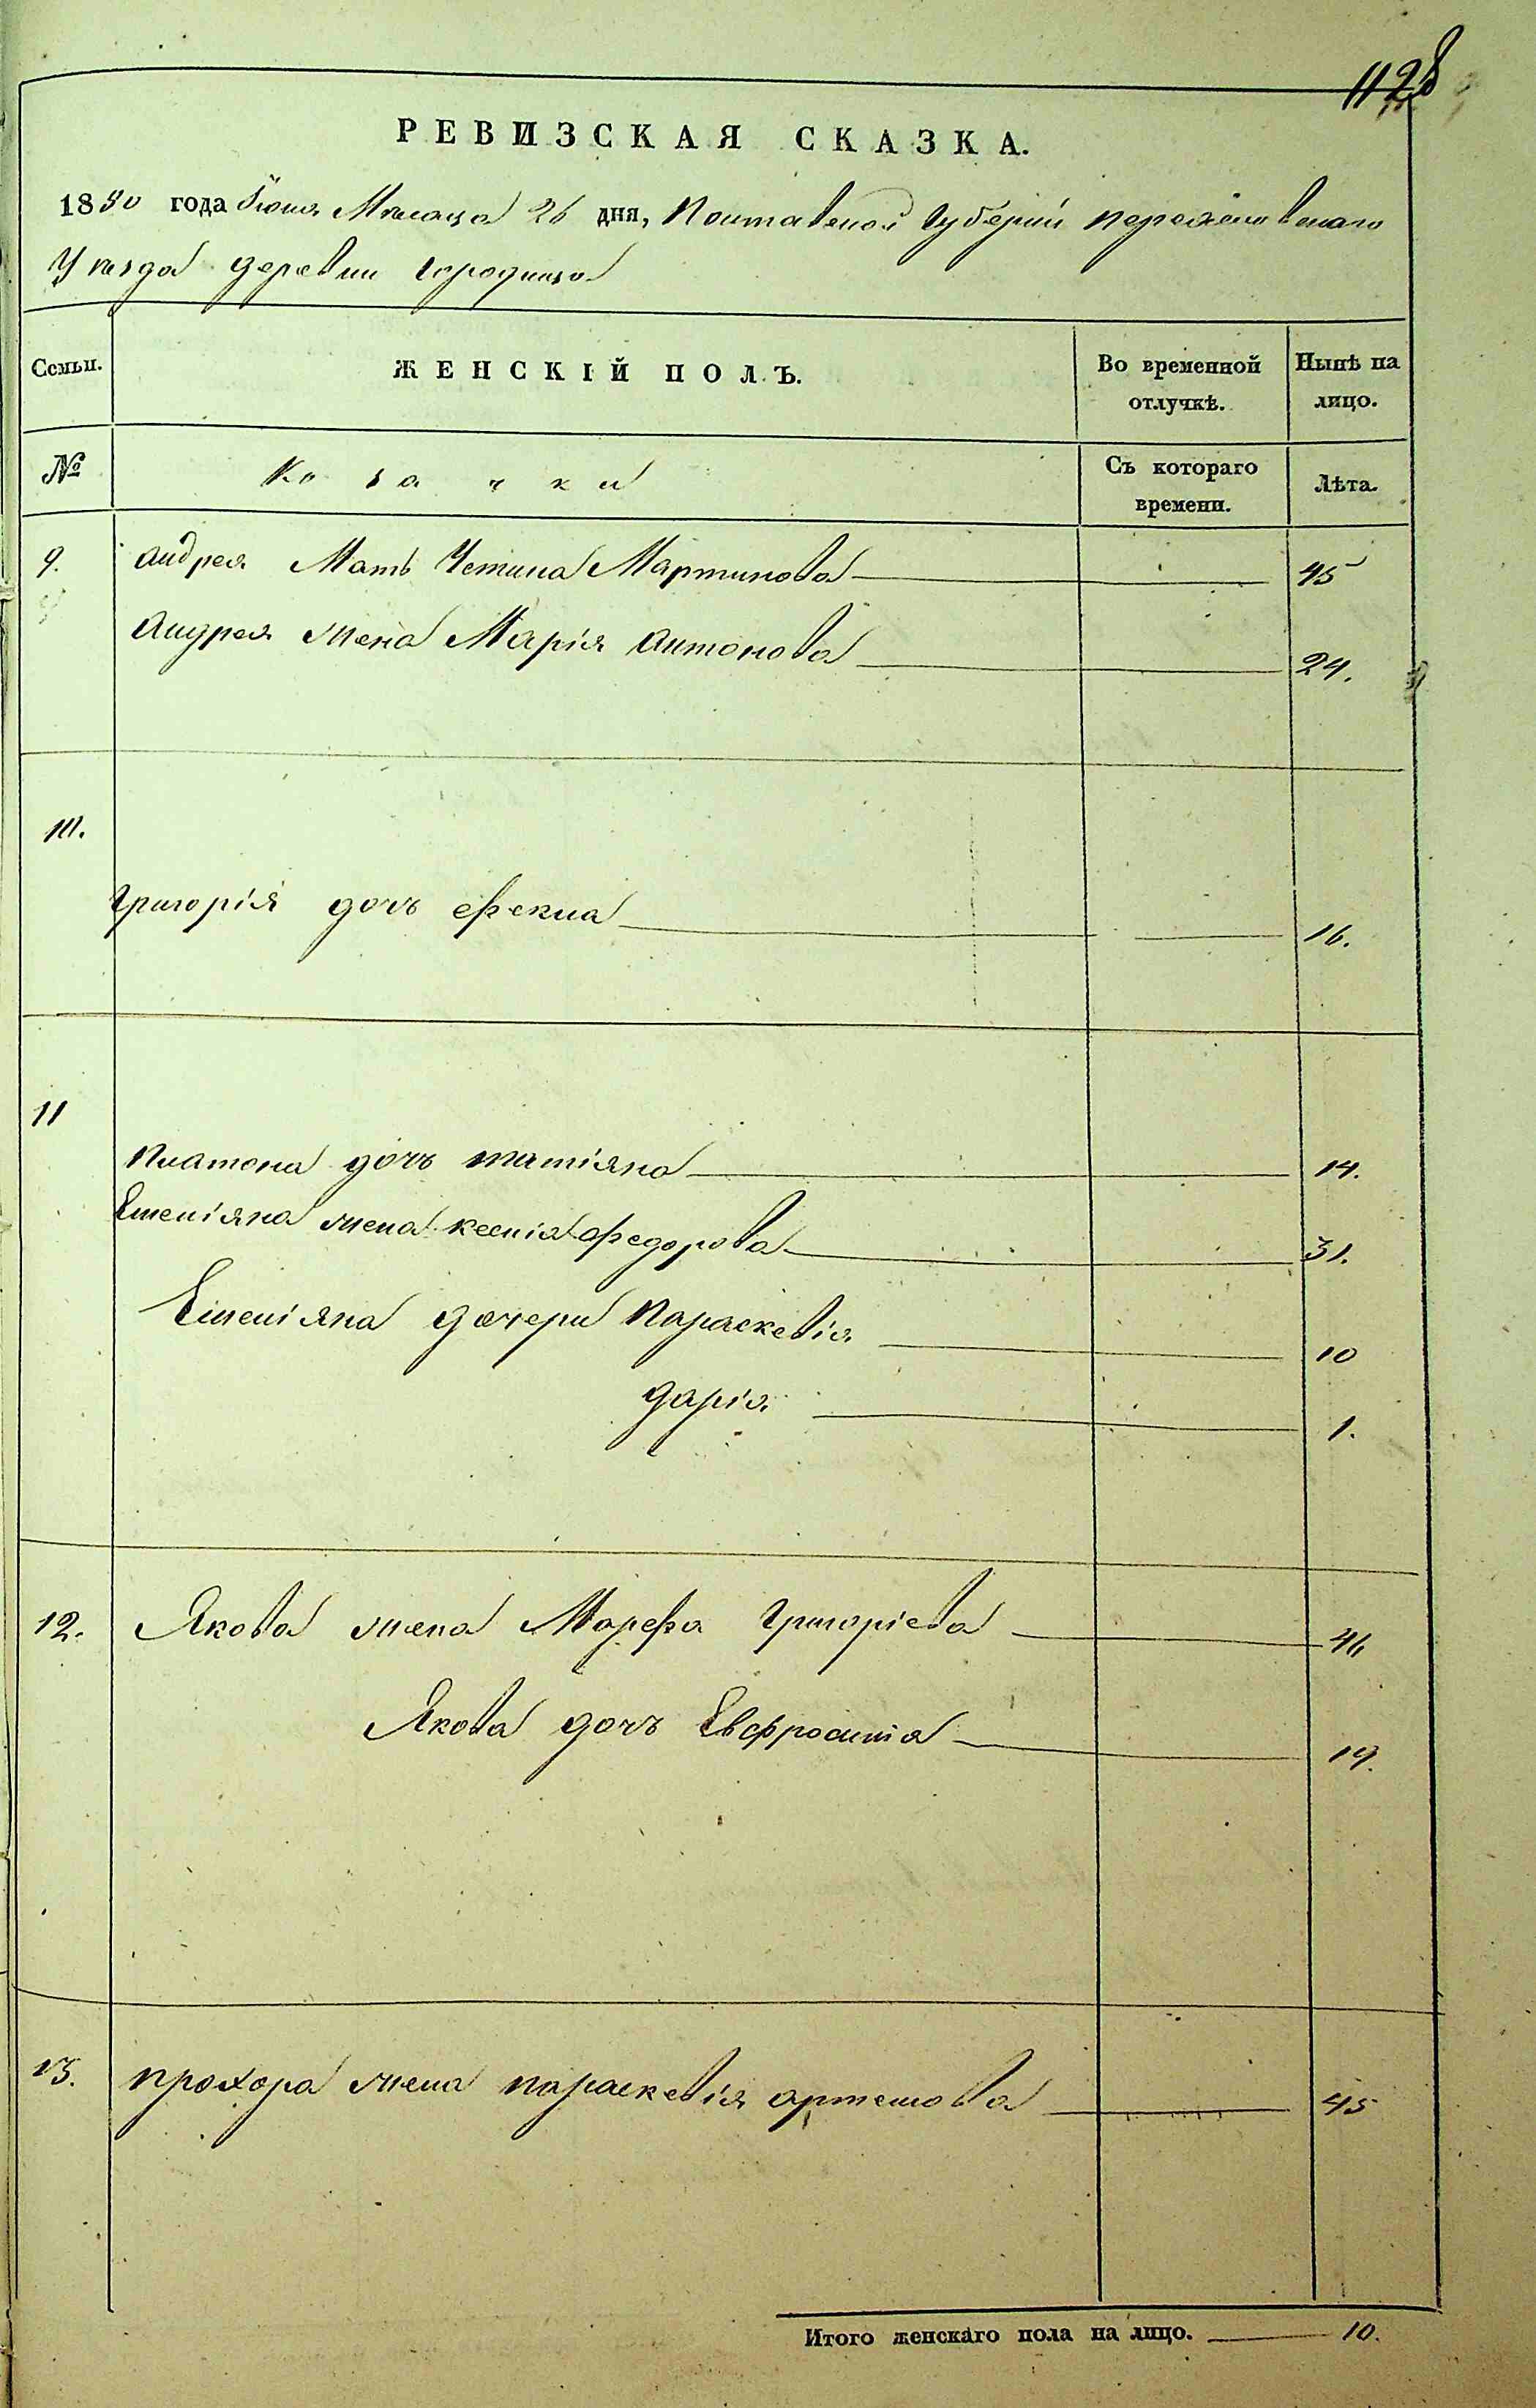 1128
РЕВИЗСКАЯ СКАЗКА.
1850 года Июня Месяца 26 дня, Полтавской Губернии Переяславского
Уезда деревни Городища
Семьи. ЖЕНСКІЙ ПОЛЪ. Во временной отлучкѣ. Нынѣ на лицо.
№ Козачки Съ котораго времени. Лѣта.
9. Андрея Мать Устина Мартинова 45
Андрея жена Марія Антонова 24.
10.
Григорія дочь Фекла 16.
11
Платона дочь Татіяна 14.
Емеліяна жена Ксенія Федорова 31.
Емеліяна дочери Параскевія 10
Дарія 1.
12. Якова жена Марфа Григоріева 46
Якова дочь Евфросинія 19.
13. Прохора жена Параскевія Артемова 45
Итого женскаго пола на лицо. 10.